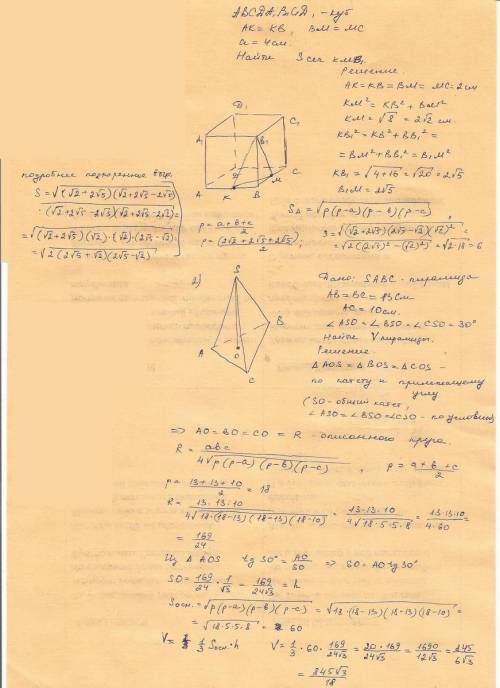 ABCDA₁B₁C₁D₁ - куб
AK = KB, BM = MC
a = 4 см.
Найти S сеч KMB₁
Решение.
AK = KB = BM = MC = 2 см
KM² = KB² + BM²
KM = √8 = 2√2 см.
KB₁² = KB² + BB₁² =
= BM² + BB₁² = B₁M²
KB₁ = √4+16 = √20 = 2√5
B₁M = 2√5
D₁
C₁
A₁
B₁
D
C
A
K
B
M
подробнее подкоренное выр.
S = √(√2+2√5)(√2+2√5-2√5)
· (√2+2√5-2√5)(√2+2√5-2√2) =
= √(√2+2√5)(√2)·(√2)·(2√5-√2) =
= √2(2√5+√2)(2√5-√2)
p = a+b+c / 2
p = (2√2+2√5+2√5) / 2 ;
S△ = √p(p-a)(p-b)(p-c)
S = √(√2+2√5)(2√5-√2)(√2)² =
= √2((2√5)²-(√2)²) = √2·18 = 6
2)
S
B
A
O
C
Дано: SABC - пирамида
AB = BC = 13 см
AC = 10 см.
∠ASO = ∠BSO = ∠CSO = 30°
Найти V пирамиды.
Решение
△AOS = △BOS = △COS -
по катету и прилежащему
углу
(SO - общий катет,
∠ASO = ∠BSO = ∠CSO - по условию)
⇒ AO = BO = CO = R - описанного круга.
R = abc / 4√p(p-a)(p-b)(p-c) , p = a+b+c / 2
p = 13+13+10 / 2 = 18
R = 13·13·10 / 4√18·(18-13)(18-13)(18-10) = 13·13·10 / 4√18·5·5·8 = 13·13·10 / 4·60 =
= 169 / 24
Из △AOS tg 30° = AO / SO ⇒ SO = AO tg 30°
SO = 169 / 24 · 1 / √3 = 169 / 24√3 = h
Sосн. = √p(p-a)(p-b)(p-c) = √18·(18-13)(18-13)(18-10) =
= √18·5·5·8 = 60
V = 1/3 Sосн·h V = 1/3 · 60 · 169 / 24√3 = 20·169 / 24√3 = 1690 / 12√3 = 845 / 6√3
= 845√3 / 18